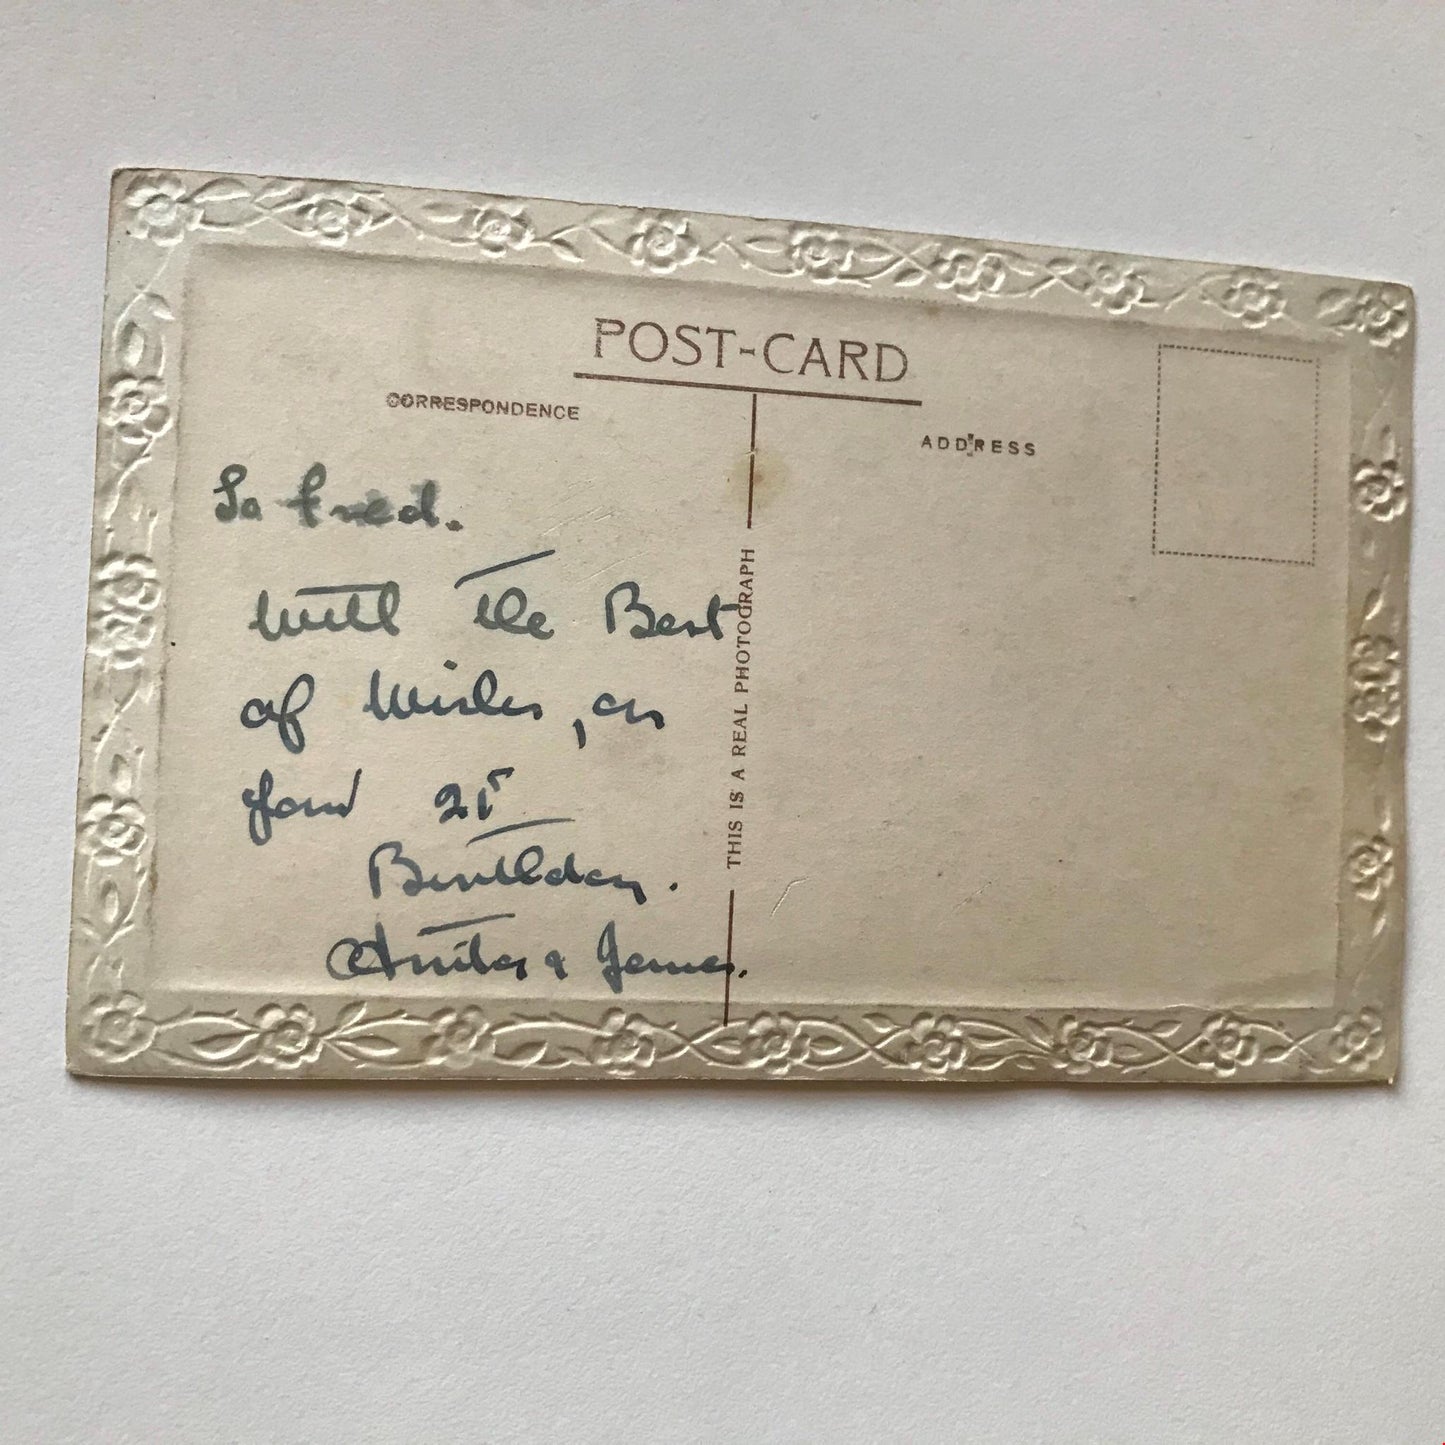 POST-CARD
CORRESPONDENCE
ADDRESS
To Fred.
With the Best
of Wishes, on
your 21st
Birthday.
Anita & James.
THIS IS A REAL PHOTOGRAPH